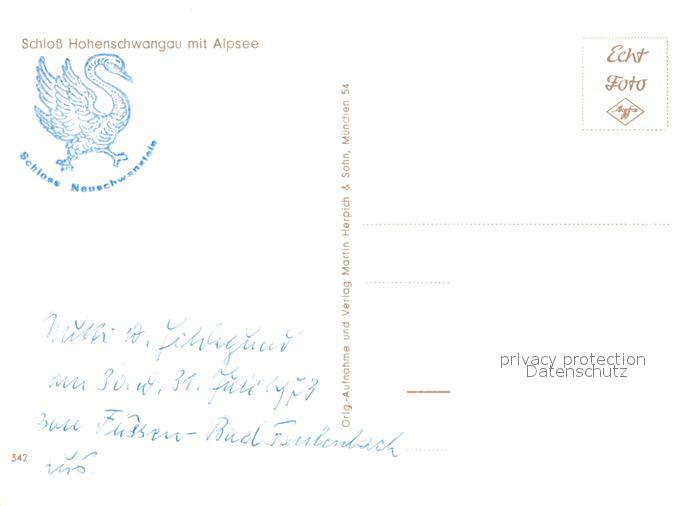 Schloß Hohenschwangau mit Alpsee
Schloss Neuschwanstein
Echt
Foto
Agfa
Orig.-Aufnahme und Verlag Martin Herpich & Sohn, München 54
privacy protection
Datenschutz
u. Hildegund
am 30. u. 31. Juli 1973
von Füssen - Bad Faulenbach
aus.
342